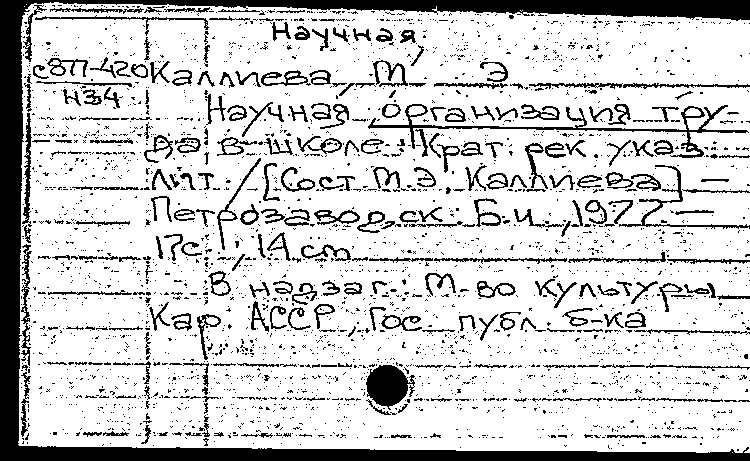 Научная
с877-420 Каллиева, М Э
Н34
Научная организация тру-
да в школе: Крат. рек. указ.
лит. / [Сост М.Э. Каллиева] —
Петрозаводск: Б.и., 1977. —
17с.; 14 cm
В надзаг.: М-во культуры
Кар. АССР, Гос. публ. б-ка